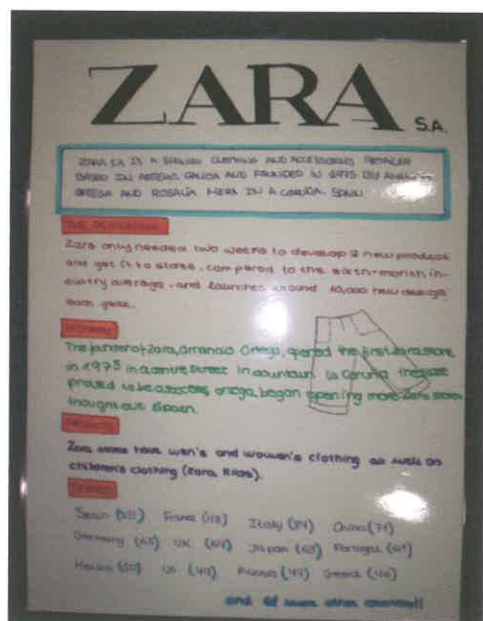 ZARA S.A.
ZARA SA IS A SPANISH CLOTHING AND ACCESSORIES RETAILER
BASED IN ARTEIXO, GALICIA AND FOUNDED IN 1975 BY AMANCIO
ORTEGA AND ROSALÍA MERA IN A CORUÑA SPAIN.
Zara only needed two weeks to develop a new product
and get it to store, compared to the sixth-month in-
dustry average, and launches around 10,000 new designs
each year.
History
The funder of Zara, amancio Ortega, opened the first zara store
in 1975 in a central Street in dountoun la Coruña. The store
proved to be a success, ortega began opening more Zara stores
thoughtout Spaen.
Zara stores have men's and wouwen's clothing as well as
children's clothing (Zara Kids).
Stores
Spain France Italy China (71)
Germany (65) UK (64) Japan (63) Portugal (61)
Mexico (50) US (49) Russia (47) Greece (46)
and of more other countries!!